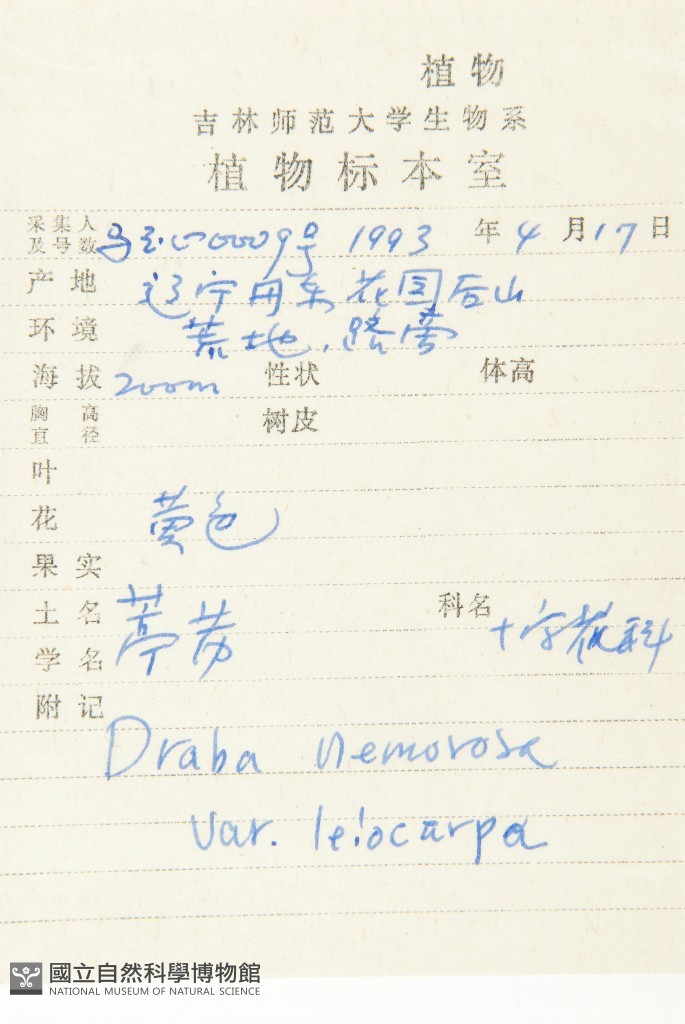 植物
吉林师范大学生物系
植物标本室
采集人及号数 00009号 1993年4月17日
产地 辽宁丹东花园后山
环境 荒地,路旁
海拔 200m 性状 体高
胸高直径 树皮
叶
花 黄色
果实
土名 葶苈 科名 十字花科
学名
附记
Draba nemorosa
var. leiocarpa
國立自然科學博物館
NATIONAL MUSEUM OF NATURAL SCIENCE